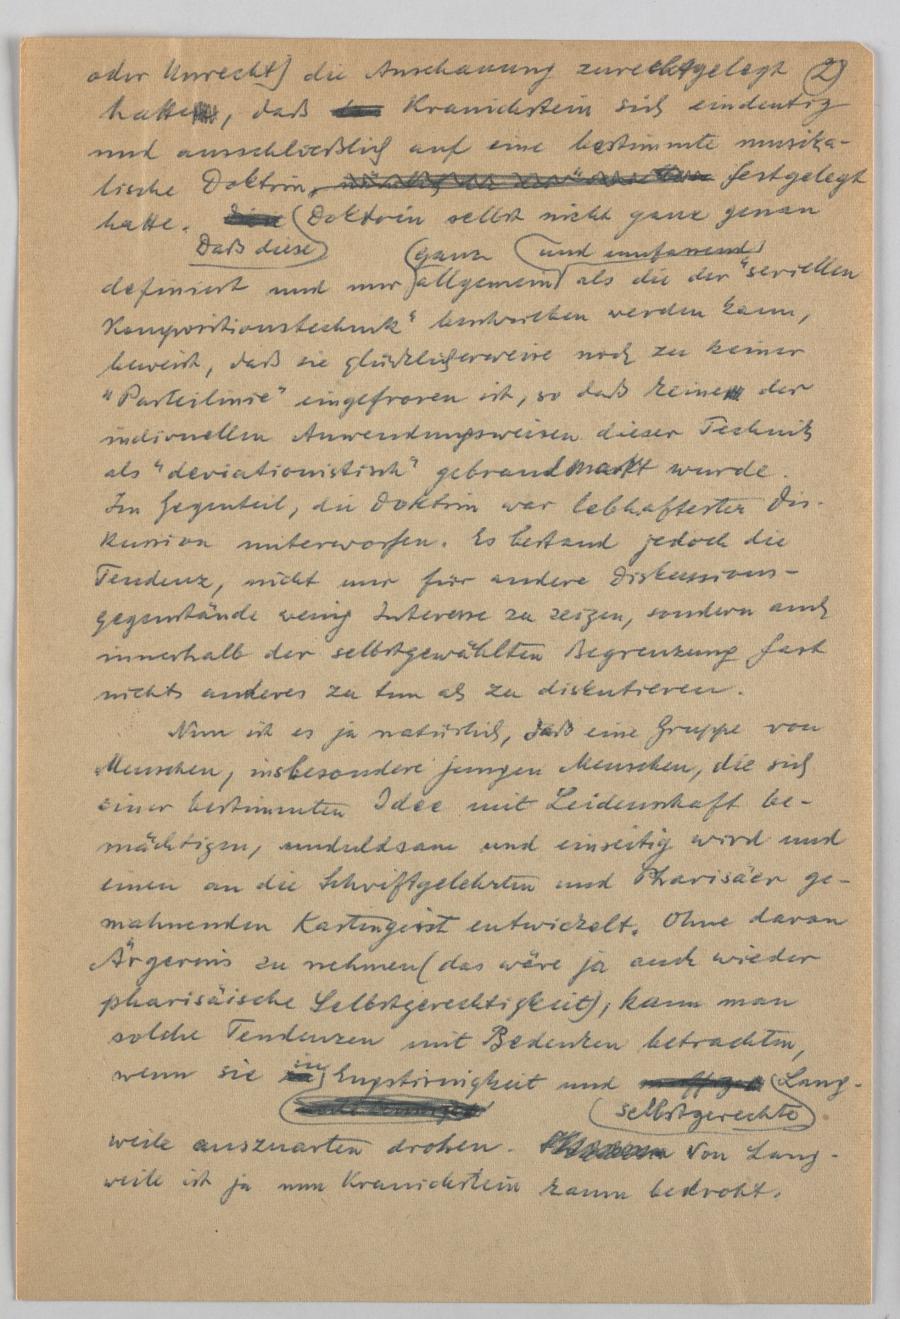 oder Unrecht) die Anschauung zurechtgelegt 2)
hatte, daß Kranichstein sich eindeutig
und ausschließlich auf eine bestimmte musika-
lische Doktrin festgelegt
hatte. Doktrin selbst nicht ganz genau
Daß diese ganz und umfassend
definiert und nur allgemein als die der "seriellen
Kompositionstechnik" beschrieben werden kann,
beweist, daß sie glücklicherweise noch zu keiner
"Parteilinie" eingefroren ist, so daß keine der
indivuellen Anwendungsweisen dieser Technik
als "deviationistisch" gebrandmarkt wurde.
Im Gegenteil, die Doktrin war lebhaftester Dis-
kussion unterworfen. Es bestand jedoch die
Tendenz, nicht nur für andere Diskussions-
gegenstände wenig Interesse zu zeigen, sondern auch
innerhalb der selbstgewählten Begrenzung fast
nichts anderes zu tun als zu diskutieren.
Nun ist es ja natürlich, daß eine Gruppe von
Menschen, insbesondere jungen Menschen, die sich
einer bestimmten Idee mit Leidenschaft be-
mächtigen, unduldsam und einseitig wird und
einen an die Schriftgelehrten und Pharisäer ge-
mahnenden Kastengeist entwickelt. Ohne daran
Ärgernis zu nehmen (das wäre ja auch wieder
pharisäische Selbstgerechtigkeit), kann man
solche Tendenzen mit Bedenken betrachten,
wenn sie in Engstirnigkeit und Lang-
selbstgerechte
weile auszuarten drohen. Von Lang-
weile ist ja nun Kranichstein kaum bedroht.